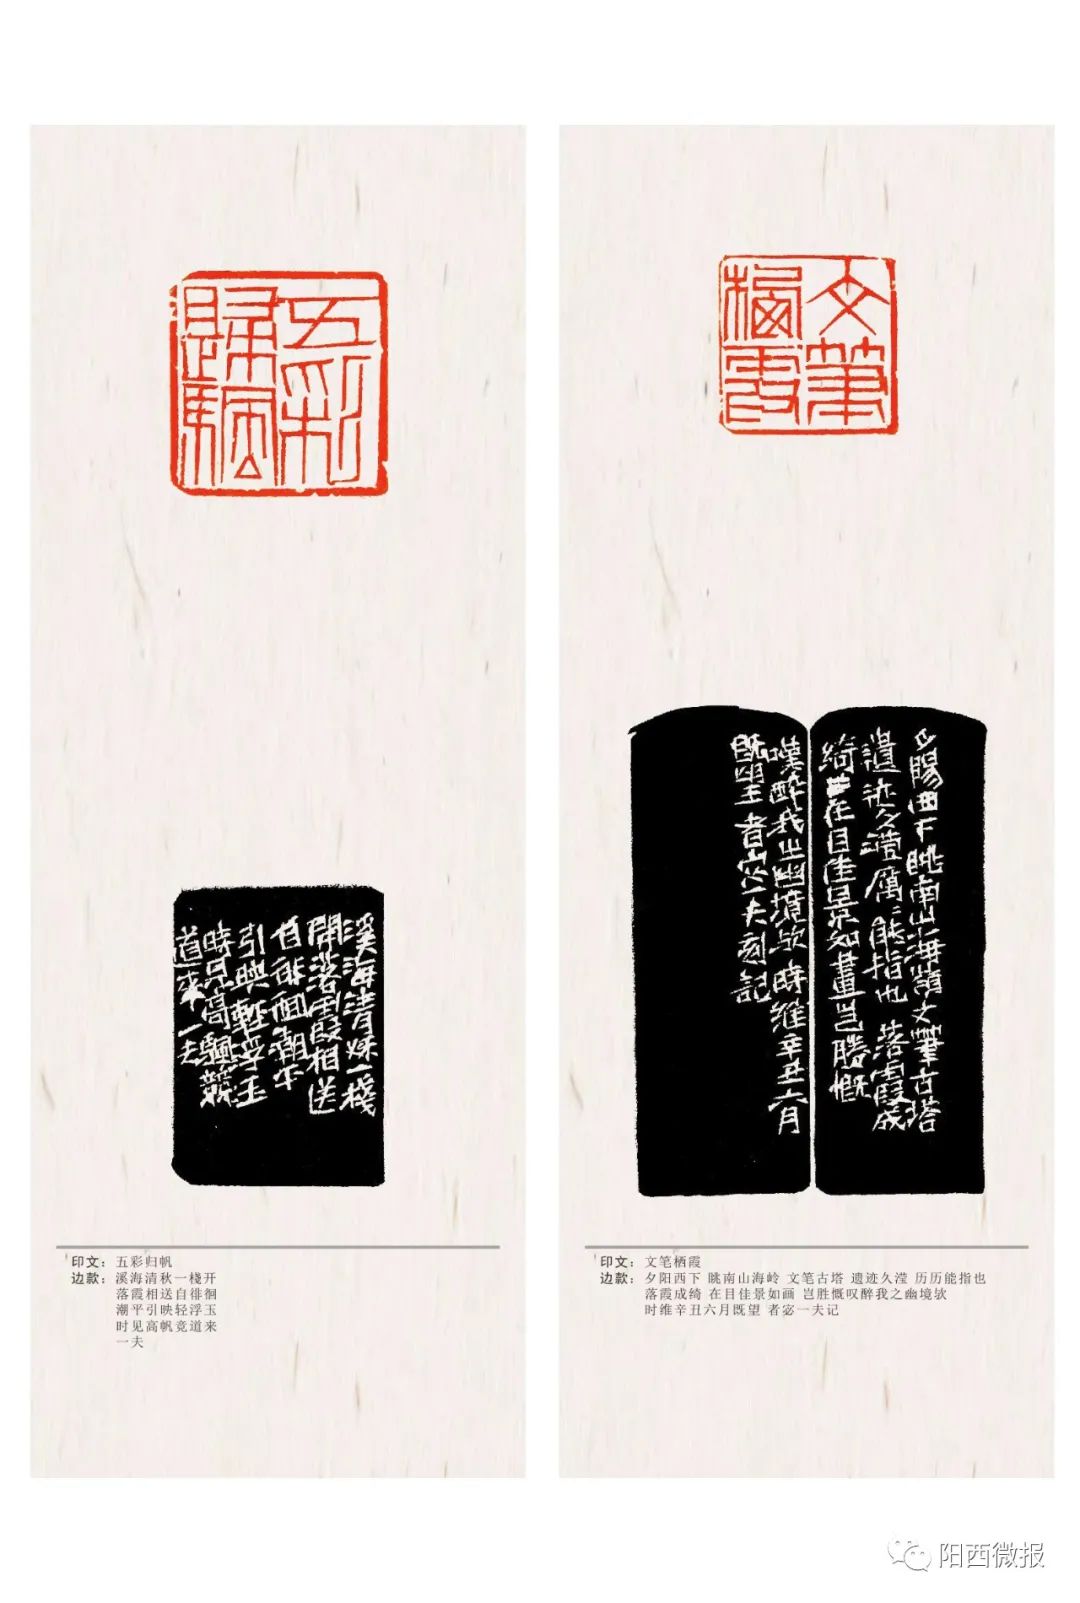 五彩
歸驅
溪海清秋一棧
開落霞相送
自徘徊潮平
引映輕浮玉
時見高驅競
道来一夫
印文：五彩归帆
边款：溪海清秋一棧开
落霞相送自徘徊
潮平引映轻浮玉
时见高帆竞道来
一夫
文筆
栖霞
夕陽西下眺南山海嶺文筆古塔
遺迹久瀅厲〻能指也 落霞成
綺在目佳景如畫豈勝慨
嘆醉我之幽境欤 時維辛丑六月
既望 者宓一夫刻記
印文：文笔栖霞
边款：夕阳西下 眺南山海岭 文笔古塔 遗迹久滢 历历能指也
落霞成绮 在目佳景如画 岂胜慨叹醉我之幽境欤
时维辛丑六月既望 者宓一夫记
阳西微报